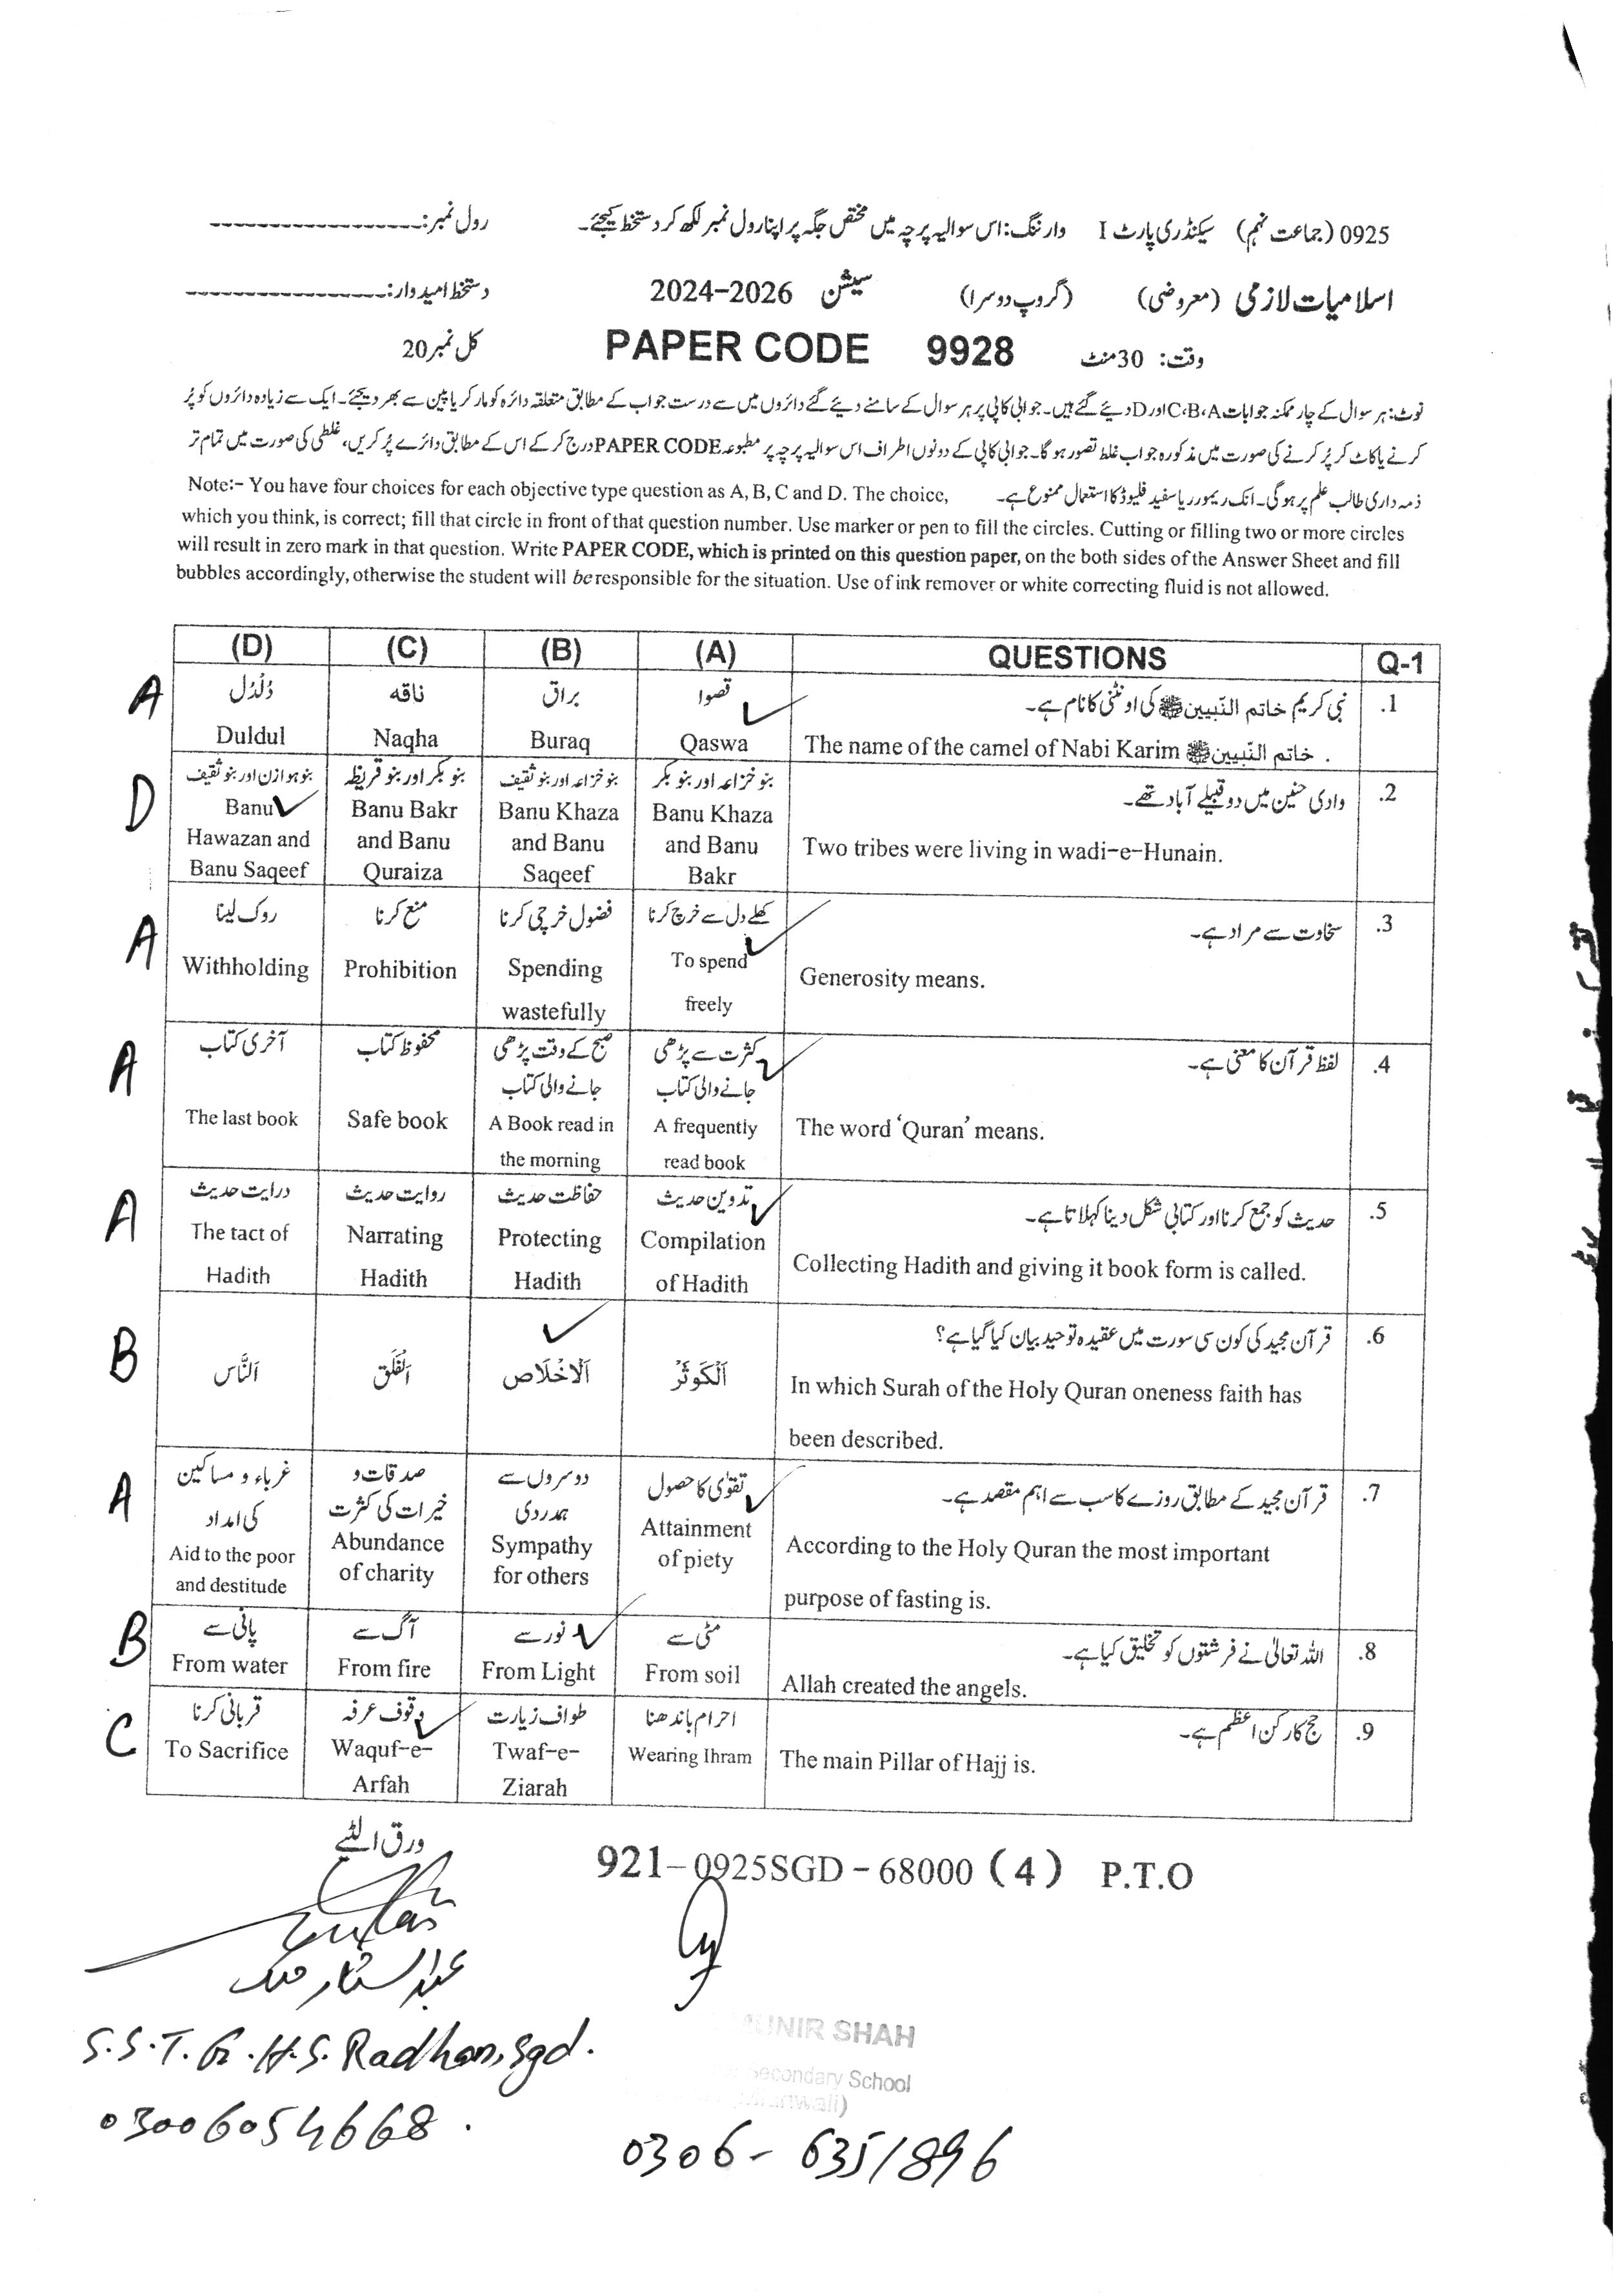 0925 (جماعت نہم) سیکنڈری پارٹ I وارننگ: اس سوالیہ پرچہ میں مختص جگہ پر اپنا رول نمبر لکھ کر دستخط کیجئے۔ رول نمبر:
اسلامیات لازمی (معروضی) (گروپ دوسرا) سیشن 2024-2026 دستخط امیدوار:
وقت: 30 منٹ PAPER CODE 9928 کل نمبر 20
نوٹ:ہر سوال کے چار ممکنہ جوابات C،B،A اور D دیئے گئے ہیں۔ جوابی کاپی پر ہر سوال کے سامنے دیئے گئے دائروں میں سے درست جواب کے مطابق متعلقہ دائرہ کو مارکر یا پین سے بھر دیجئے۔ ایک سے زیادہ دائروں کو پُر
کرنے یا کاٹ کر پُر کرنے کی صورت میں مذکورہ جواب غلط تصور ہو گا۔ جوابی کاپی کے دونوں اطراف اس سوالیہ پرچہ پر مطبوعہ PAPER CODE درج کر کے اس کے مطابق دائرے پُر کریں، غلطی کی صورت میں تمام تر
ذمہ داری طالب علم پر ہوگی۔ انک ریموور یا سفید فلیوڈ کا استعمال ممنوع ہے۔
Note:- You have four choices for each objective type question as A, B, C and D. The choice,
which you think, is correct; fill that circle in front of that question number. Use marker or pen to fill the circles. Cutting or filling two or more circles
will result in zero mark in that question. Write PAPER CODE, which is printed on this question paper, on the both sides of the Answer Sheet and fill
bubbles accordingly, otherwise the student will be responsible for the situation. Use of ink remover or white correcting fluid is not allowed.
(D) (C) (B) (A) QUESTIONS Q-1
A دُلدُل ناقہ براق قصوا نبی کریم خاتم النّبیین ﷺ کی اونٹنی کا نام ہے۔ .1
Duldul Naqha Buraq Qaswa The name of the camel of Nabi Karim خاتم النّبیین ﷺ .
D بنو ہوازن اور بنو ثقیف بنو بکر اور بنو قریظہ بنو خزاعہ اور بنو ثقیف بنو خزاعہ اور بنو بکر وادی حنین میں دو قبیلے آباد تھے۔ .2
Banu Banu Bakr Banu Khaza Banu Khaza
Hawazan and and Banu and Banu and Banu Two tribes were living in wadi-e-Hunain.
Banu Saqeef Quraiza Saqeef Bakr
A روک لینا منع کرنا فضول خرچی کرنا کھلے دل سے خرچ کرنا سخاوت سے مراد ہے۔ .3
Withholding Prohibition Spending To spend Generosity means.
wastefully freely
A آخری کتاب محفوظ کتاب صبح کے وقت پڑھی کثرت سے پڑھی لفظ قرآن کا معنی ہے۔ .4
جانے والی کتاب جانے والی کتاب
The last book Safe book A Book read in A frequently The word ‘Quran’ means.
the morning read book
A درایت حدیث روایت حدیث حفاظت حدیث تدوین حدیث حدیث کو جمع کرنا اور کتابی شکل دینا کہلاتا ہے۔ .5
The tact of Narrating Protecting Compilation Collecting Hadith and giving it book form is called.
Hadith Hadith Hadith of Hadith
قرآن مجید کی کون سی سورت میں عقیدہ توحید بیان کیا گیا ہے؟ .6
B اَلنَّاس اَلْفَلَق اَلْاِخْلَاص اَلْکَوثَرْ In which Surah of the Holy Quran oneness faith has
been described.
A غرباء و مساکین صدقات و دوسروں سے تقوٰی کا حصول قرآن مجید کے مطابق روزے کا سب سے اہم مقصد ہے۔ .7
کی امداد خیرات کی کثرت ہمدردی
Aid to the poor Abundance Sympathy Attainment According to the Holy Quran the most important
and destitude of charity for others of piety purpose of fasting is.
B پانی سے آگ سے نور سے مٹی سے اللہ تعالیٰ نے فرشتوں کو تخلیق کیا ہے۔ .8
From water From fire From Light From soil Allah created the angels.
C قربانی کرنا وقوف عرفہ طواف زیارت احرام باندھنا حج کا رکن اعظم ہے۔ .9
To Sacrifice Waquf-e- Twaf-e- Wearing Ihram The main Pillar of Hajj is.
Arfah Ziarah
ورق الٹیے
921-0925SGD-68000 (4) P.T.O
عبدالستار ملک
S.S.T. G.H.S. Radhan, Sgd.
MUNIR SHAH
Secondary School
03006054668.
0306-6351896